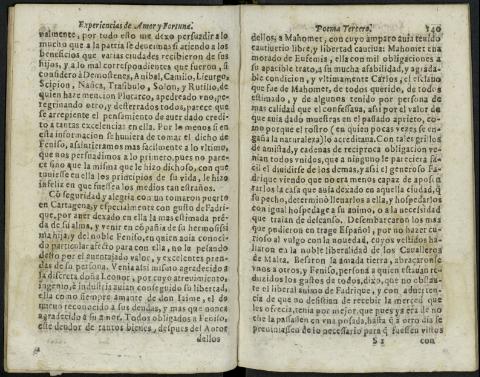 Experiencias de Amor y Fortuna.
ualmente, por todo esto me dexo persuadir a lo
mucho que a la patria le deuemos si atiendo a los
beneficios que varias ciudades recibieron de sus
hijos, y a lo mal correspondientes que fueron, si
considero à Demostenes, Anibal, Camilo, Licurgo,
Scipion, Nasica, Trasibulo, Solon, y Rutilio, de
quien haze mencion Plutarco, apedreado vno, pe-
regrinando otro, y desterrados todos, parece que
se arrepiente el pensamiento de auer dado credi-
to a tantas excelencias en ella. Por lo menos si en
esta informacion se huuiera de tomar el dicho de
Feniso, assintieramos mas facilmente a lo vltimo,
que nos persuadimos a lo primero, pues no pare-
ce sino que la misma que le hizo dichoso, con que
tuuiesse en ella los principios de su vida, le hizo
infeliz en que fuessen los medios tan estraños.
Cō seguridad y alegria con tomaron puerto
en Cartagena, y especialmente con gusto de Fadri-
que, por auer dexado en ella la mas estimada prē-
da de su alma, y venir en cōpañia de su hermosissi
ma hija, y del noble Feniso, en quien auia conoci-
do particular afecto para con ella, no le pesando
desto por el auentajado valor, y excelentes pren-
das de su persona. Venia assi mismo agradecido a
la discreta doña Leonor, por cuyo atreuimiento,
ingenio, è industria auian conseguido su libertad,
ella como siempre amante de don Iaime, el do
menos reconocido a sus deudas, y mas que nunca
agradecido a su amor. Todos obligados a Feniso,
este deudor de tantos bienes, despues del Autor
dellos
Poema Tercero. 140
dellos, a Mahomet, con cuyo amparo auia tenido
cautiuerio libre, y libertad cautiua: Mahomet ena
morado de Eufemia, ella con mil obligaciones a
su apacible trato, a su mucha afabilidad, y agrada-
ble condicion, y vltimamente Carlos, el esclauo
que fue de Mahomet, de todos querido, de todos
estimado, y de algunos tenido por persona de
mas calidad que el confessaua, assi por el valor de
que auia dado muestras en el passado aprieto, co-
mo porque el rostro (en quien pocas vezes se en-
gaña la naturaleza) lo acreditaua. Con tales grillos
de amistad, y cadenas de reciproca obligacion ve-
nian todos vnidos, que a ninguno le pareciera fa-
cil el diuidirse de los demas, y assi el generoso Fa-
drique viendo que no era menos capaz de aposen
tarlos la casa que auia dexado en aquella ciudad, q̃
su pecho, determinò lleuarlos a ella, y hospedarlos
con igual hospedage a su animo, o a la necessidad
que traian de descanso. Desembarcaron los mas
que pudieron en trage Español, por no hazer cu-
rioso al vulgo con la nouedad, cuyos vestidos ha-
llaron en la noble liberalidad de los Caualleros
de Malta. Besaron la amada tierra, abraçaronse
vnos a otros, y Feniso, persona a quien estauan re-
ducidos los gastos de todos, dixo, que no obstan-
te el liberal animo de Fadrique, y con aduerten-
cia de que no desistian de recebir la merced que
les ofrecia, tenia por mejor, que pues ya era de no
che la passassen en vna posada, hasta q̃ a otro dia se
preuiniessen de lo necessario para q̃ fuessen vistos
S 2 con